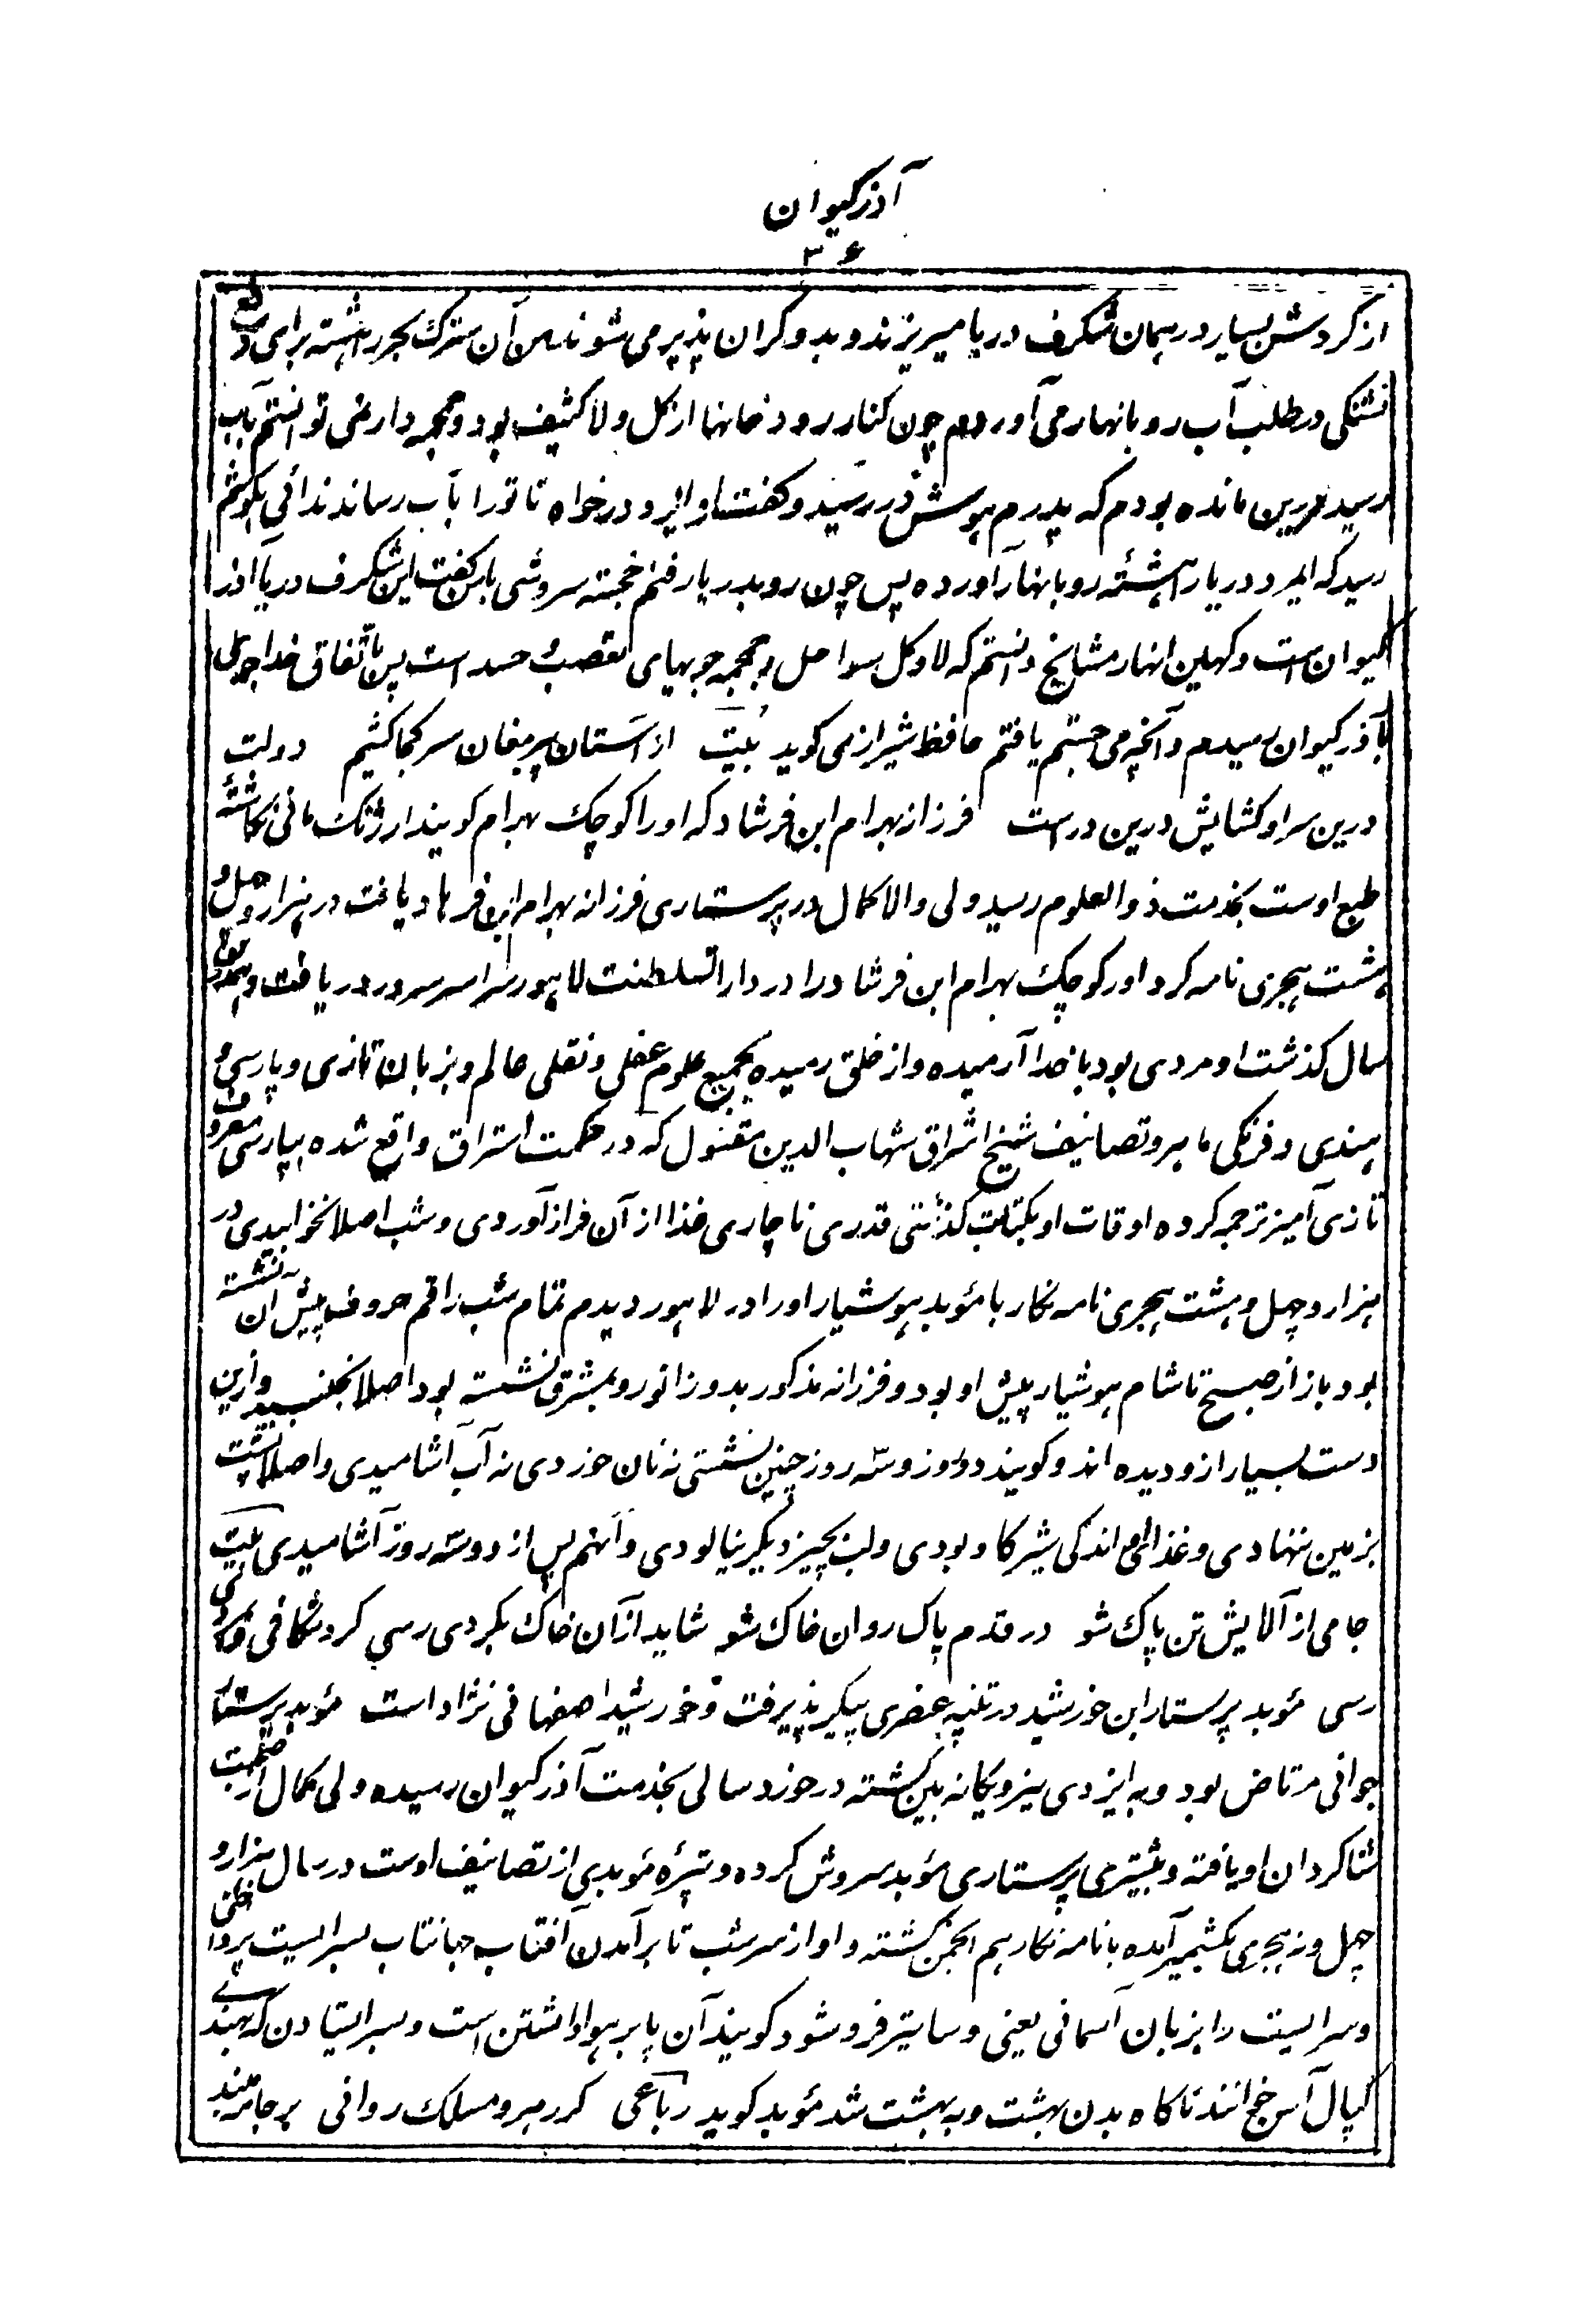 آذرکیوان
۳۶
از گردش بسیار در همان شگرف دریا میریزند و بدو کران پذیر می شوند من آن سترک بحر را هشته برای دفع
تشنگی در طلب آب رو بانهار می آوردم چون کنار رودخانها از گل و لا کثیف بود و جمجمه دار نمی توانستم بآب
رسید درین مانده بودم که پدرم هوش در رسید و گفت از ایزد درخواه تا تو را بآب رساند ندائی بگوشم
رسید که ایمرد دریا را هشته رو بانهار آورده پس چون رو بدریا رفتم خجسته سروشی با من گفت این شگرف دریا آذر
کیوان است و کهین انهار مشایخ دانستم که لا و گل سواحل و جمجمه جویهای تعصب و حسد است پس باتفاق خداجویلی
بآذر کیوان رسیدم و آنچه می جستم یافتم حافظ شیراز می گوید بیت از آستان پیر مغان سر کجا کشیم دولت
درین سرا و گشایش درین در است فرزانه بهرام ابن فرشاد که او را کوچک بهرام گویند ارژنگ مانی نگاشته
طبع اوست بخدمت ذوالعلوم رسید ولی والا کمال در پرستاری فرزانه بهرام ابن فرهاد یافت در هزار و چهل و
هشت هجری نامه گرد آور کوچک بهرام ابن فرشاد را در دارالسلطنت لاهور سراسر سرور دریافت و همدران
سال گذشت او مردی بود با خدا آرمیده و از خلق رمیده بجمیع علوم عقلی و نقلی عالم و بزبان تازی و پارسی و
هندی و فرنگی ماهر و تصانیف شیخ اشراق شهاب الدین مقتول که در حکمت اشراق واقع شده بپارسی معروف
تازی آمیز ترجمه کرده اوقات او بکتابت گذشتی قدری ناچاری غذا از آن فراز آوردی و شب اصلا نخوابیدی در
هزار و چهل و هشت هجری نامه نگار با مؤبد هوشیار او را در لاهور دیدم تمام شب راقم حروف پیش آن نشسته
بود باز از صبح تا شام هوشیار پیش او بود و فرزانه مذکور بدو زانو رو بمشرق نشسته بود اصلا نجنبید و ازین
دست بسیار ازو دیده اند و گویند دو روز و سه روز چنین نشستی نه نان خوردی نه آب آشامیدی و اصلا پشت
بزمین ننهادی و غذائی اندکی شیر گاو بودی و لب بچیز دیگر نیالودی و آنهم پس از دو سه روز آشامیدی بیت
جامی از آلایش تن پاک شو در قدم پاک روان خاک شو شاید از آن خاک بگردی رسی گرد شکافی و بمردی
رسی مؤبد پرستار ابن خورشید در تنپه عنصری پیکر پذیرفت و خورشید اصفهانی نژاد است مؤبد پرستار
جوانی مرتاض بود و به ایزدی نیز و یگانه بین گشته در خورد سالی بخدمت آذر کیوان رسیده ولی کمال از صحبت
شاگردان او یافته و بیشتری پرستاری مؤبد سروش کرده و تپرهٔ مؤبدی از تصانیف اوست در سال هزار و
چهل و نه هجری بکشمیر آمده با نامه نگار هم انجمن گشته و او از سر شب تا برآمدن آفتاب جهانتاب بسرایست پرداختی
و سرایست را بزبان آسمانی یعنی وساتیر فروشود گویند آن پا بر هوا داشتن است و بسر ایستادن که بهندی
کپال آسن خوانند ناگاه بدن بهشت و به بهشت شد مؤبد گوید رباعی گر رهرو مسلک روانی بر جا مند